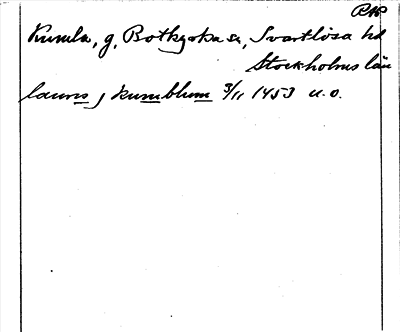 RAP
Kumla, g, Botkyrka sn, Svartlösa hd
Stockholms län
laurns j kumblum 3/11 1453 u.o.